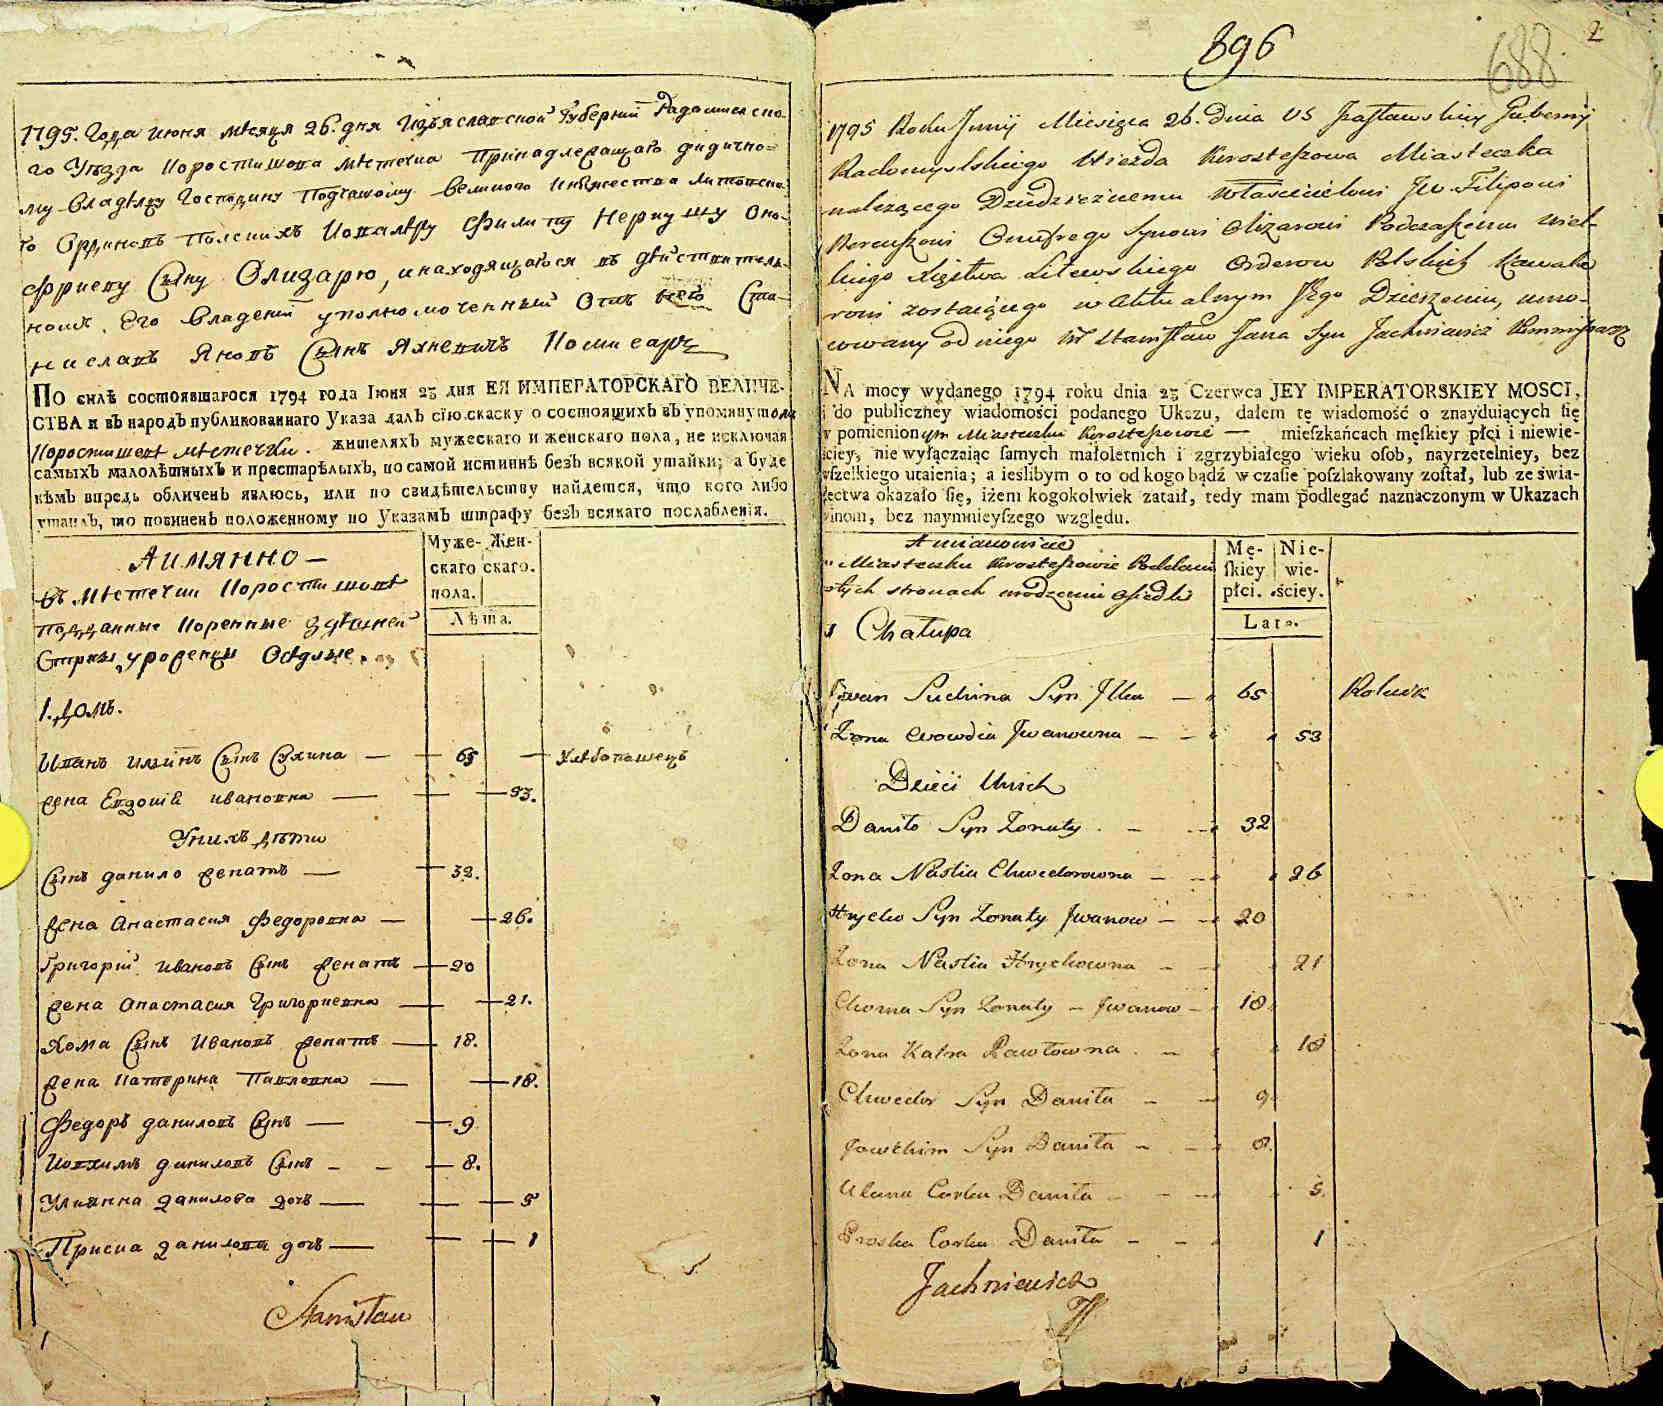 1795. Года июня мѣсяца 26. дня Изъяславской Губерніи Радомисско-
го Уѣзда Коростишова мѣстечка Принадлежащаго дидично-
му Владѣлцу Господину Подчашому великого Княжества Литовско-
го Орденовъ Полскихъ Кавалѣру Филипу Неркушу Оно-
фриеву Сыну Олизарю, инаходящагося въ дѣйствител-
номъ Его владении уполномоченный Отъ него Ста-
ниславъ Яновъ Сынъ Яхневичъ Комисаръ
ПО силѣ состоявшагося 1794 года Іюня 23 дня ЕЯ ИМПЕРАТОРСКАГО ВЕЛИЧЕ-
СТВА и въ народъ публикованнаго Указа далъ сїю скаску о состоящихъ въ упомянутомъ
Коростишевѣ мѣстечку. жителяхъ мужескаго и женскаго пола, не исключая
самыхъ малолѣтныхъ и престарѣлыхъ, по самой истиннѣ безъ всякой утайки; а буде
кѣмъ впредь обличенъ явлюсь, или по свидѣтельству найдется, что кого либо
утаилъ, то повиненъ положенному по Указамъ штрафу безъ всякаго послабленїя.
Аимянно —
въ Мѣстечки Коростишовѣ
подданные Коренные здѣшней
Страны уроженцы Осѣдлые.
Муже-скаго пола. Жен-скаго.
Лѣта.
1. Домъ.
Иванъ Ильинъ Сынъ Сухина — 65 — Хлѣбопашецъ
жена Евдокія ивановна — 53.
Унихъ дѣти
Сынъ данило женатъ — 32.
жена Анастасия Федоровна — 26.
Григорій Ивановъ Сынъ женатъ — 20
жена Анастасия Григориевна — 21.
Хома Сынъ Ивановъ женатъ — 18.
жена Катерина Павловна — 18.
Федоръ даниловъ Сынъ — 9
Иоахимъ даниловъ Сынъ — — 8.
Улианна Данилова дочь — 5
Приска данилова дочь — 1
Stanisław
896
688
2
1795 Roku Junij Miesiąca 26. Dnia VS Izasławskiey Gubernij
Radomyslskiego Uiezda Korosteszowa Miasteczka
nalezącego Dziedzicznemu Włascicielowi JW Filipowi
Nereuszowi Onufrego Synowi Olizarowi Podczaszemu Wiel-
kiego Xięstwa Litewskiego Orderow Polskich Kawale
rowi zostaiącego w Aktualnym Jego Dzierzeniu, umo-
cowany od niego W Stanisław Jana Syn Jachniewicz Kommissarz
NA mocy wydanego 1794 roku dnia 23 Czerwca JEY IMPERATORSKIEY MOSCI,
i do publiczney wiadomości podanego Ukazu, dałem tę wiadomość o znayduiących się
w pomienionym Miasteczku Korosteszowie — mieszkańcach męskiey płci i niewie-
ściey, nie wyłączaiąc samych małoletnich i zgrzybiałego wieku osob, nayrzetelniey, bez
wszelkiego utaienia; a ieslibym o to od kogo bądź w czasie poszlakowany został, lub ze świa-
dectwa okazało się, iżem kogokolwiek zataił, tedy mam podlegać naznaczonym w Ukazach
winom, bez naymnieyszego względu.
A mianowicie
w Miasteczku Korosteszowie Poddani
z tych stronach urodzeni osiedli
Mę-skiey płci. Nie-wie-ściey.
Lata.
1 Chałupa
Iwan Suchina Syn Ilka — 65 Rolnik
Zona Ewdia Jwanowna — — 53
Dzieci Unich
Daniło Syn Zonaty. — 32
Zona Nastia Chwedorowna — 26
Hryćko Syn Zonaty Jwanow — 20
Zona Nastia Hryckowna — 21
Choma Syn Zonaty — Jwanow — 18
Zona Katra Pawłowna. — 18
Chwedor Syn Daniła — 9
Jowkhim Syn Daniła — 8.
Ulana Corka Daniła — 5.
Proska Corka Daniła — — 1
Jachniewicz